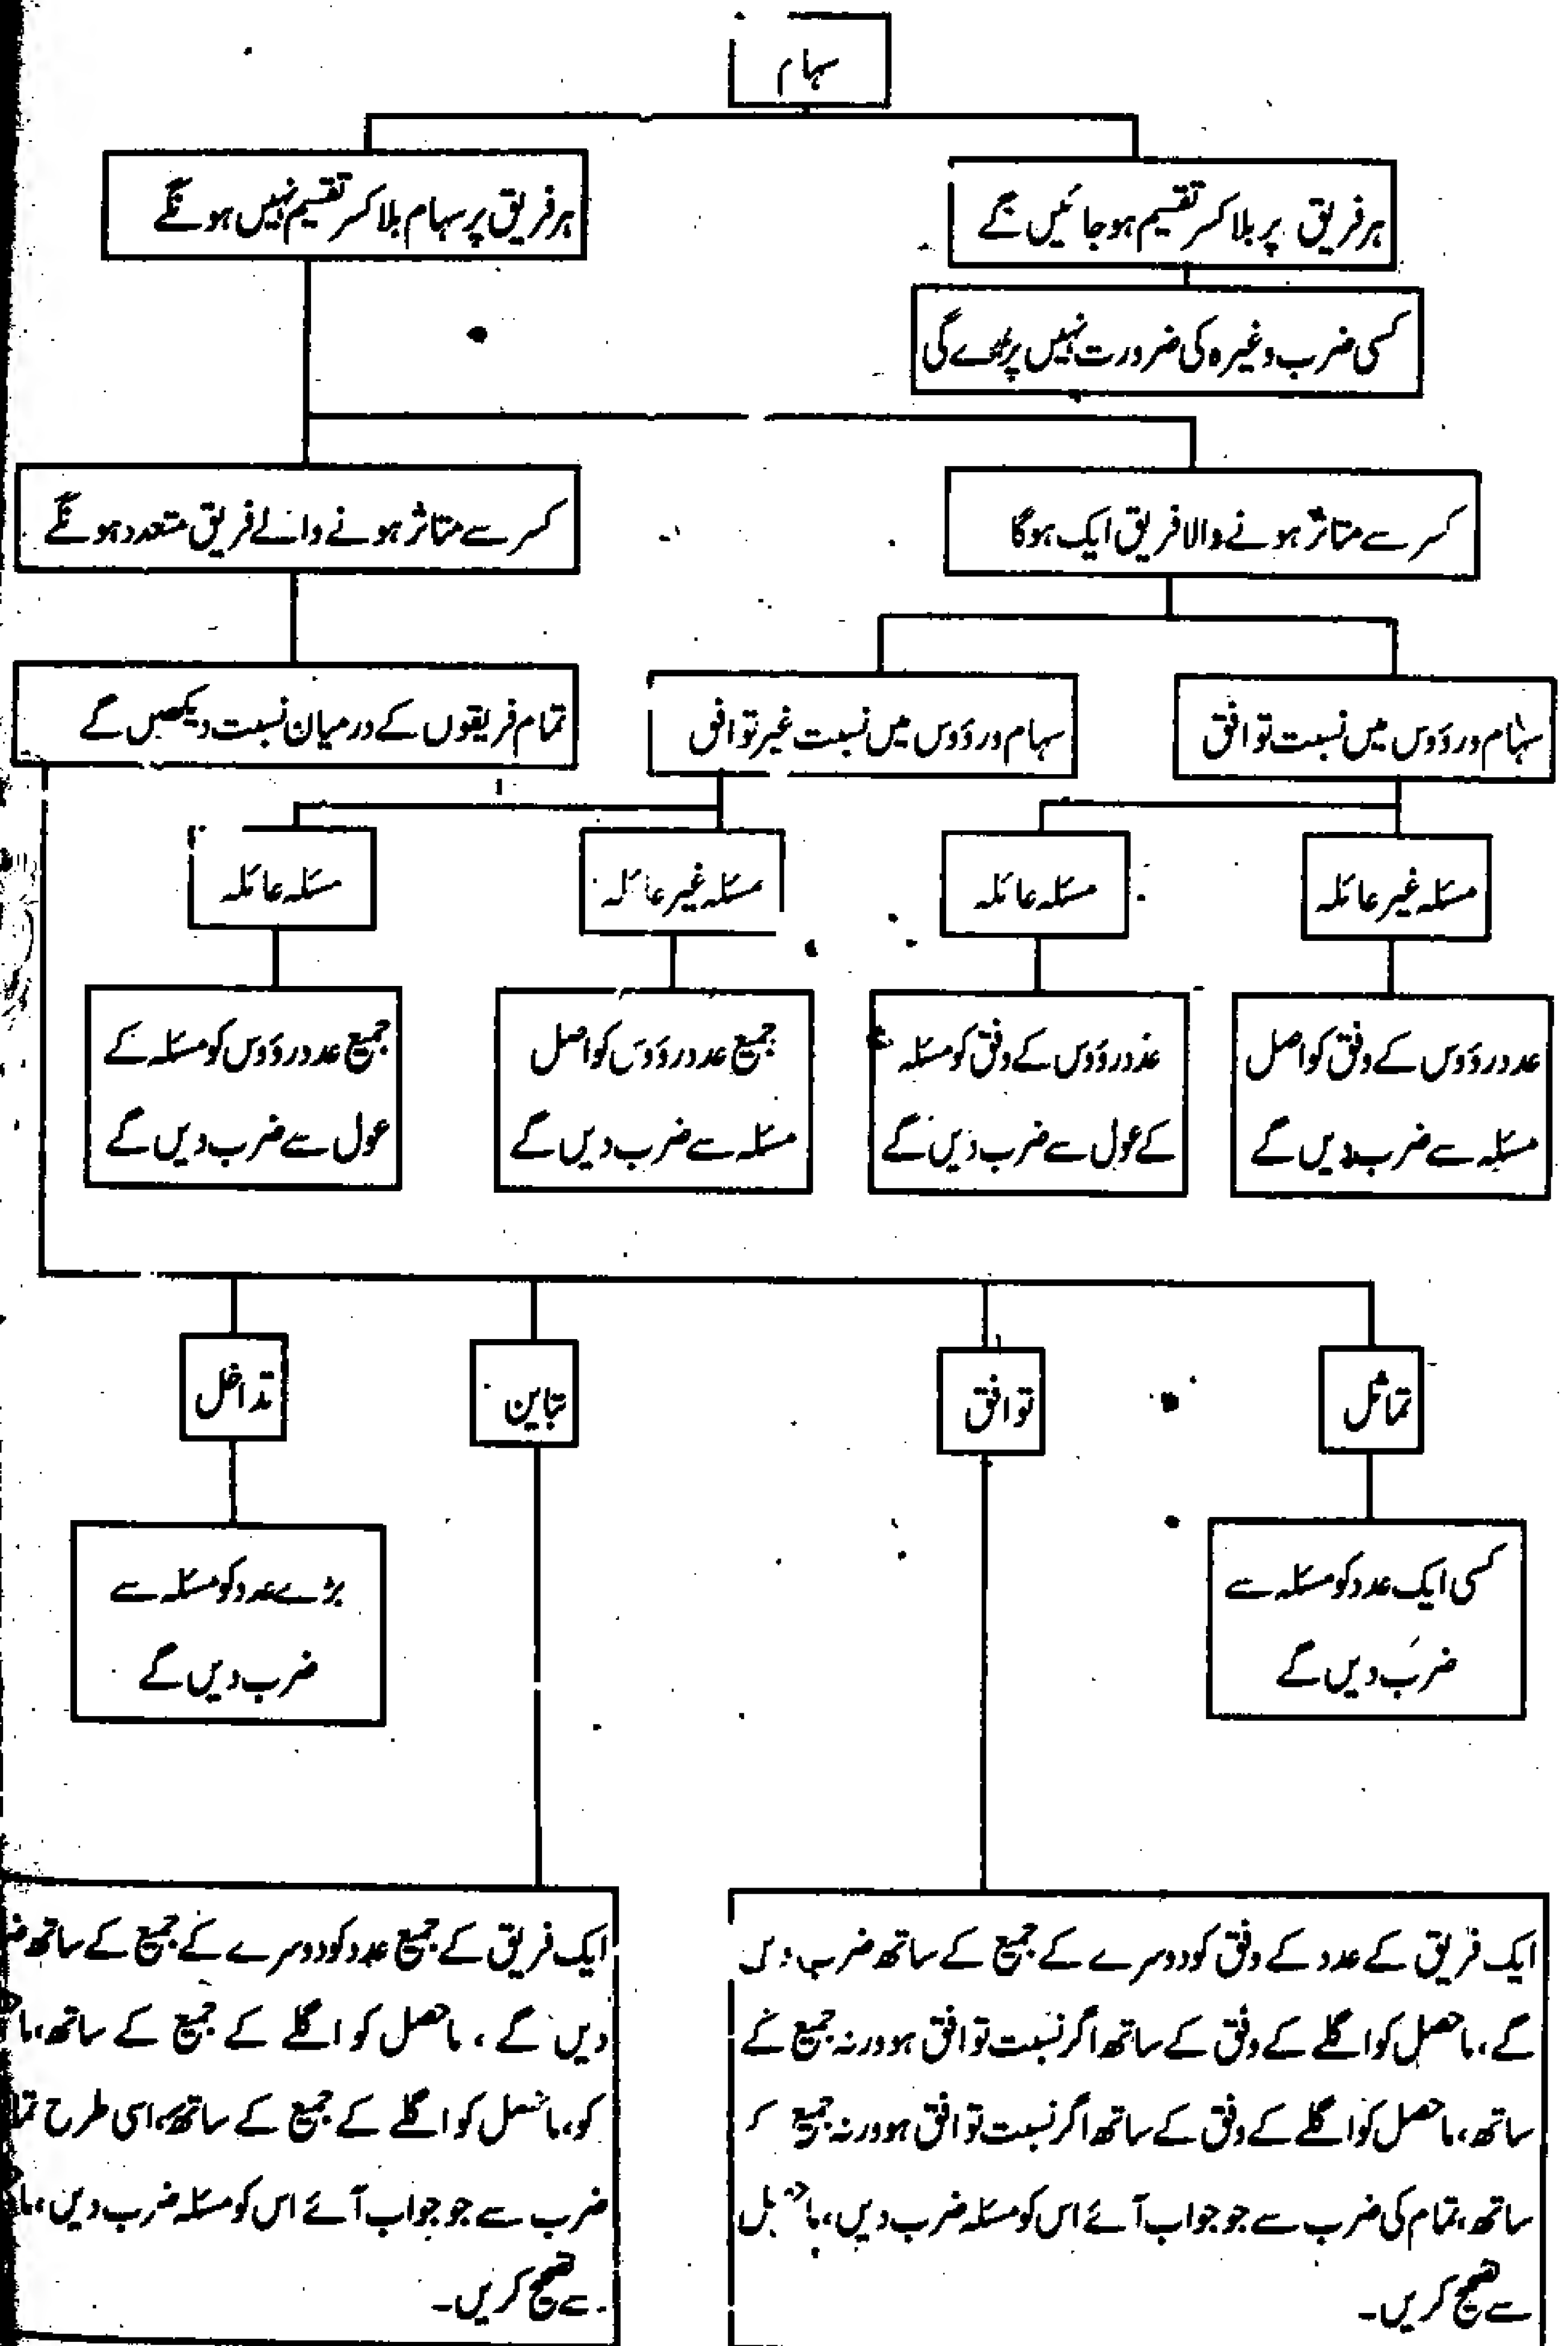 سہام
ہر فریق پر بلا کسر تقسیم ہو جائیں گے
ہر فریق پر سہام بلا کسر تقسیم نہیں ہونگے
کسی ضرب وغیرہ کی ضرورت نہیں پڑے گی
کسر سے متاثر ہونے والا فریق ایک ہوگا
کسر سے متاثر ہونے والے فریق متعدد ہونگے
سہام ورؤوس میں نسبت توافق
سہام ورؤوس میں نسبت غیر توافق
تمام فریقوں کے درمیان نسبت دیکھیں گے
مسئلہ غیر عائلہ
مسئلہ عائلہ
مسئلہ غیر عائلہ
مسئلہ عائلہ
عدد رؤوس کے وفق کو اصل
مسئلہ سے ضرب دیں گے
عدد رؤوس کے وفق کو مسئلہ
کے عول سے ضرب دیں گے
جمیع عدد رؤوس کو اصل
مسئلہ سے ضرب دیں گے
جمیع عدد رؤوس کو مسئلہ کے
عول سے ضرب دیں گے
تماثل
توافق
تباین
تداخل
کسی ایک عدد کو مسئلہ سے
ضرب دیں گے
بڑے عدد کو مسئلہ سے
ضرب دیں گے
ایک فریق کے عدد کے وفق کو دوسرے کے جمیع کے ساتھ ضرب دیں
گے، ماحصل کو اگلے کے وفق کے ساتھ اگر نسبت توافق ہو ورنہ جمیع کے
ساتھ، ماحصل کو اگلے کے وفق کے ساتھ اگر نسبت توافق ہو ورنہ جمیع کے
ساتھ، تمام کی ضرب سے جو جواب آئے اس کو مسئلہ ضرب دیں، ماحصل
سے تصحیح کریں۔
ایک فریق کے جمیع عدد کو دوسرے کے جمیع کے ساتھ
دیں گے، ماحصل کو اگلے کے جمیع کے ساتھ،
کو، ماحصل کو اگلے کے جمیع کے ساتھ، اسی طرح
ضرب سے جو جواب آئے اس کو مسئلہ ضرب دیں،
سے تصحیح کریں۔